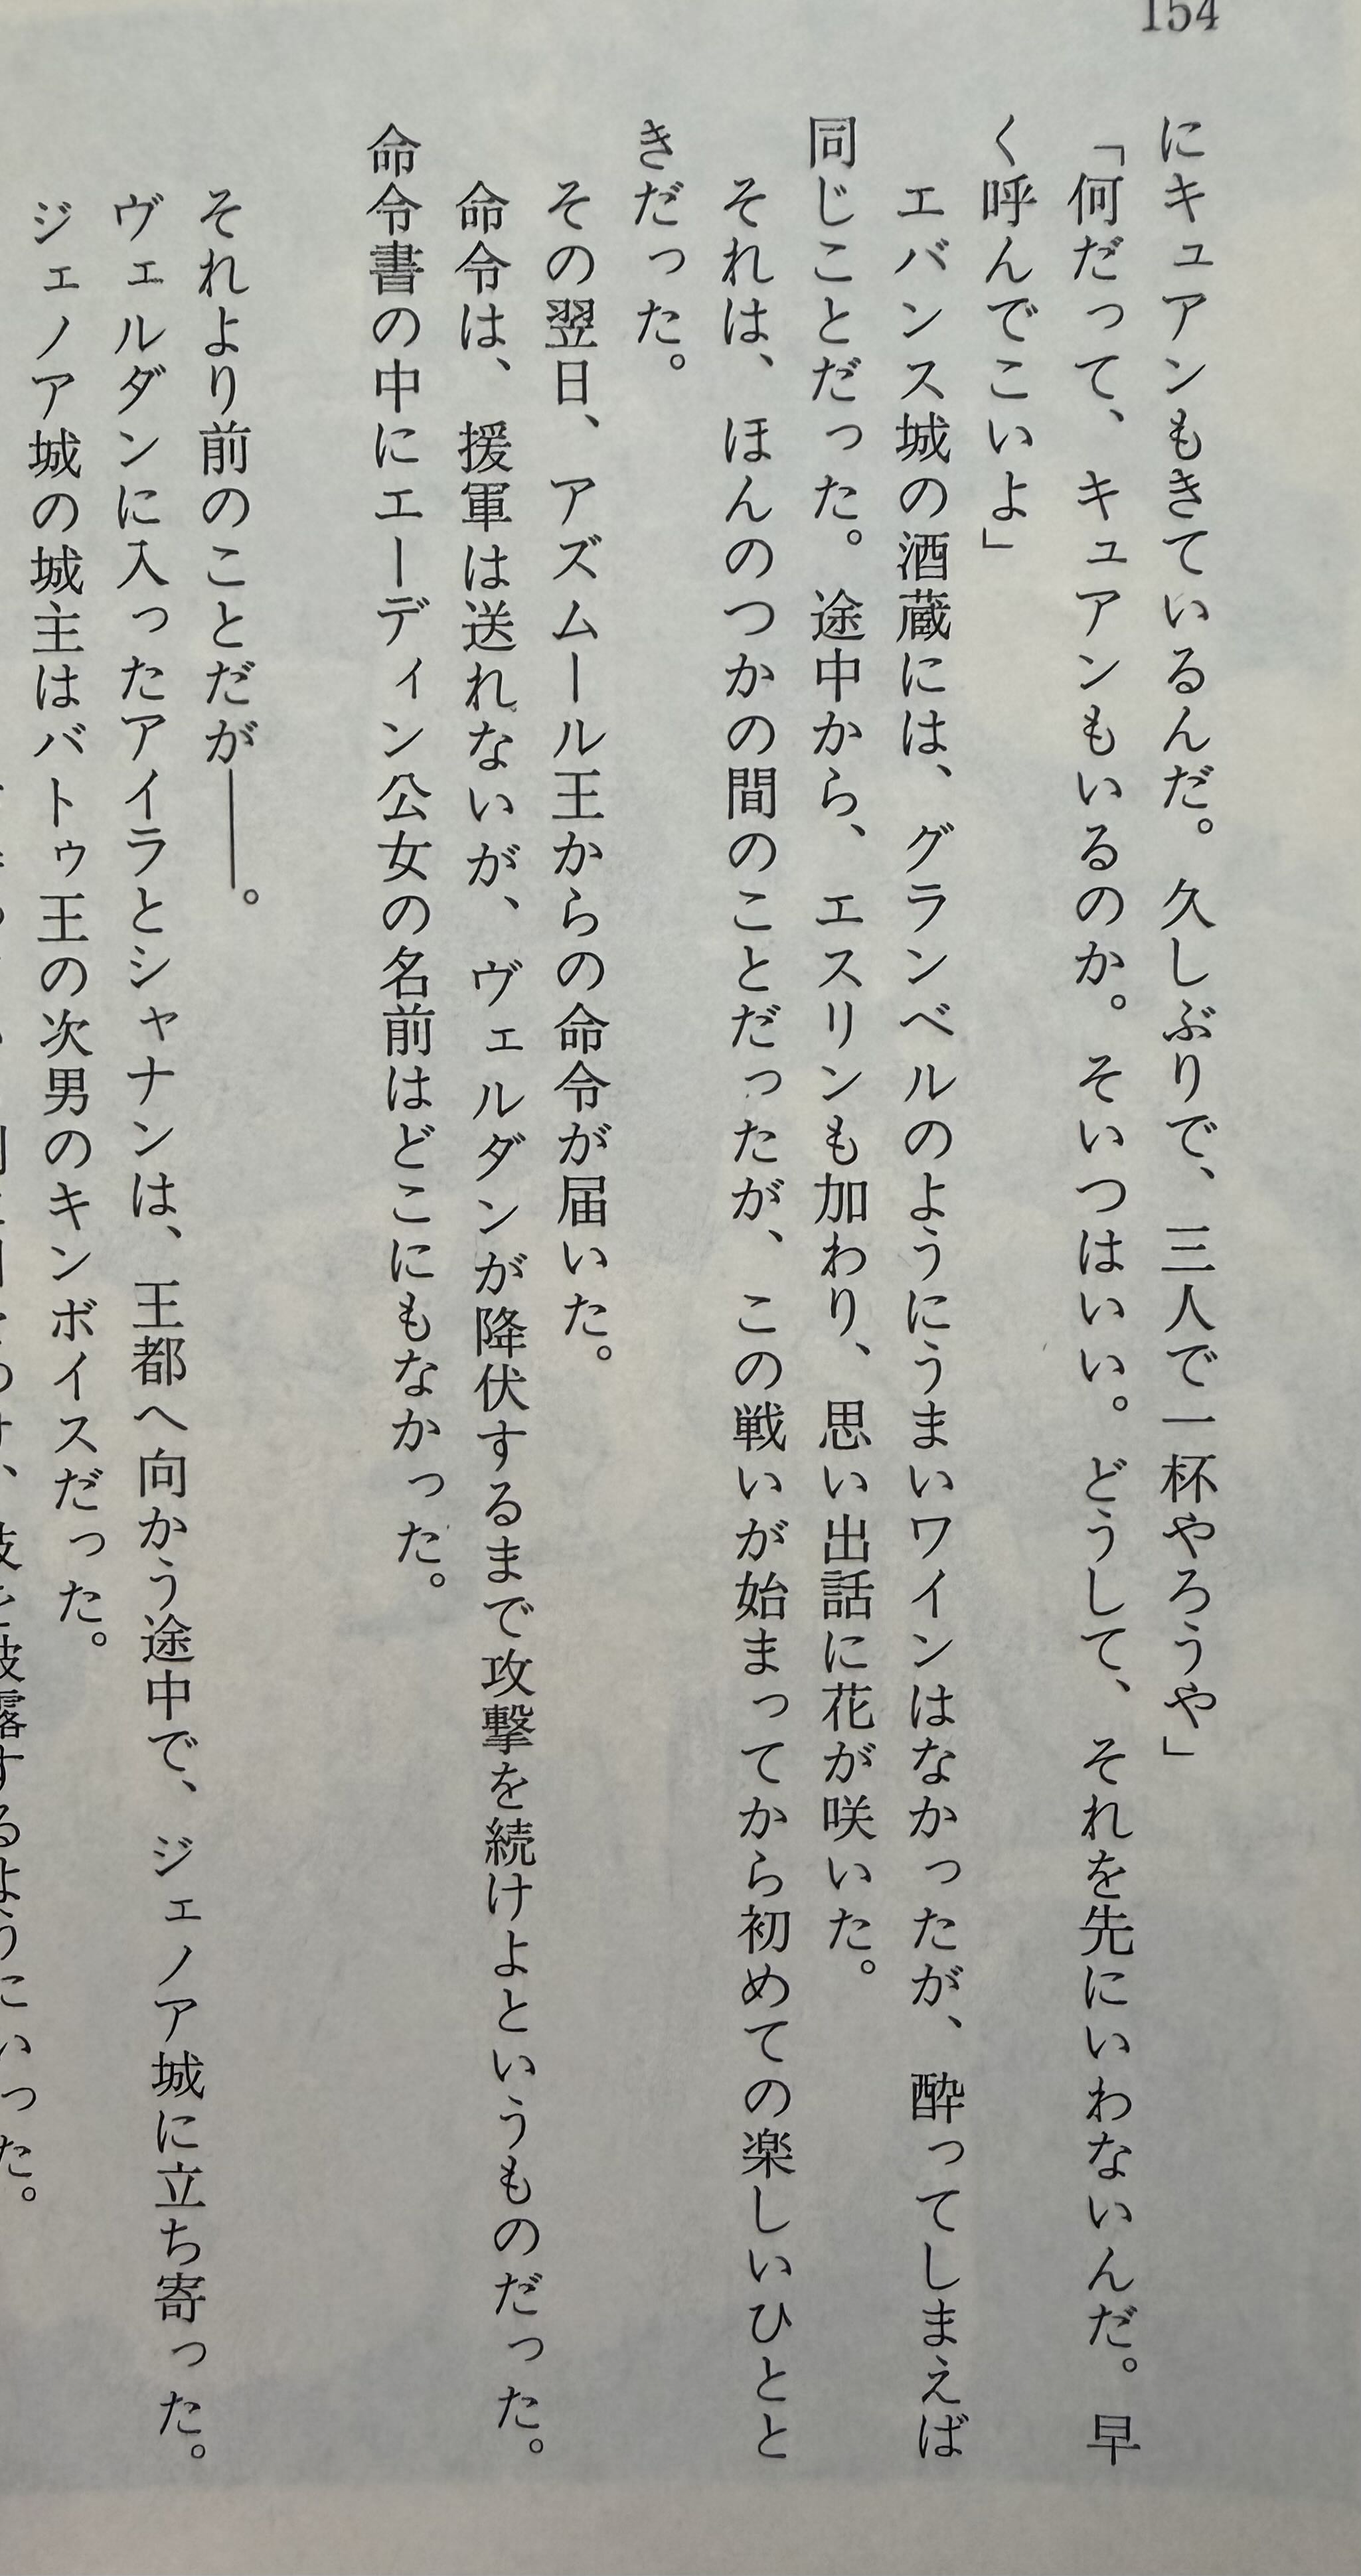 154
にキュアンもきているんだ。久しぶりで、三人で一杯やろうや」
「何だって、キュアンもいるのか。そいつはいい。どうして、それを先にいわないんだ。早
く呼んでこいよ」
エバンス城の酒蔵には、グランベルのようにうまいワインはなかったが、酔ってしまえば
同じことだった。途中から、エスリンも加わり、思い出話に花が咲いた。
それは、ほんのつかの間のことだったが、この戦いが始まってから初めての楽しいひとと
きだった。
その翌日、アズムール王からの命令が届いた。
命令は、援軍は送れないが、ヴェルダンが降伏するまで攻撃を続けよというものだった。
命令書の中にエーディン公女の名前はどこにもなかった。
それより前のことだが――。
ヴェルダンに入ったアイラとシャナンは、王都へ向かう途中で、ジェノア城に立ち寄った。
ジェノア城の城主はバトゥ王の次男のキンボイスだった。
披露するようにいった。